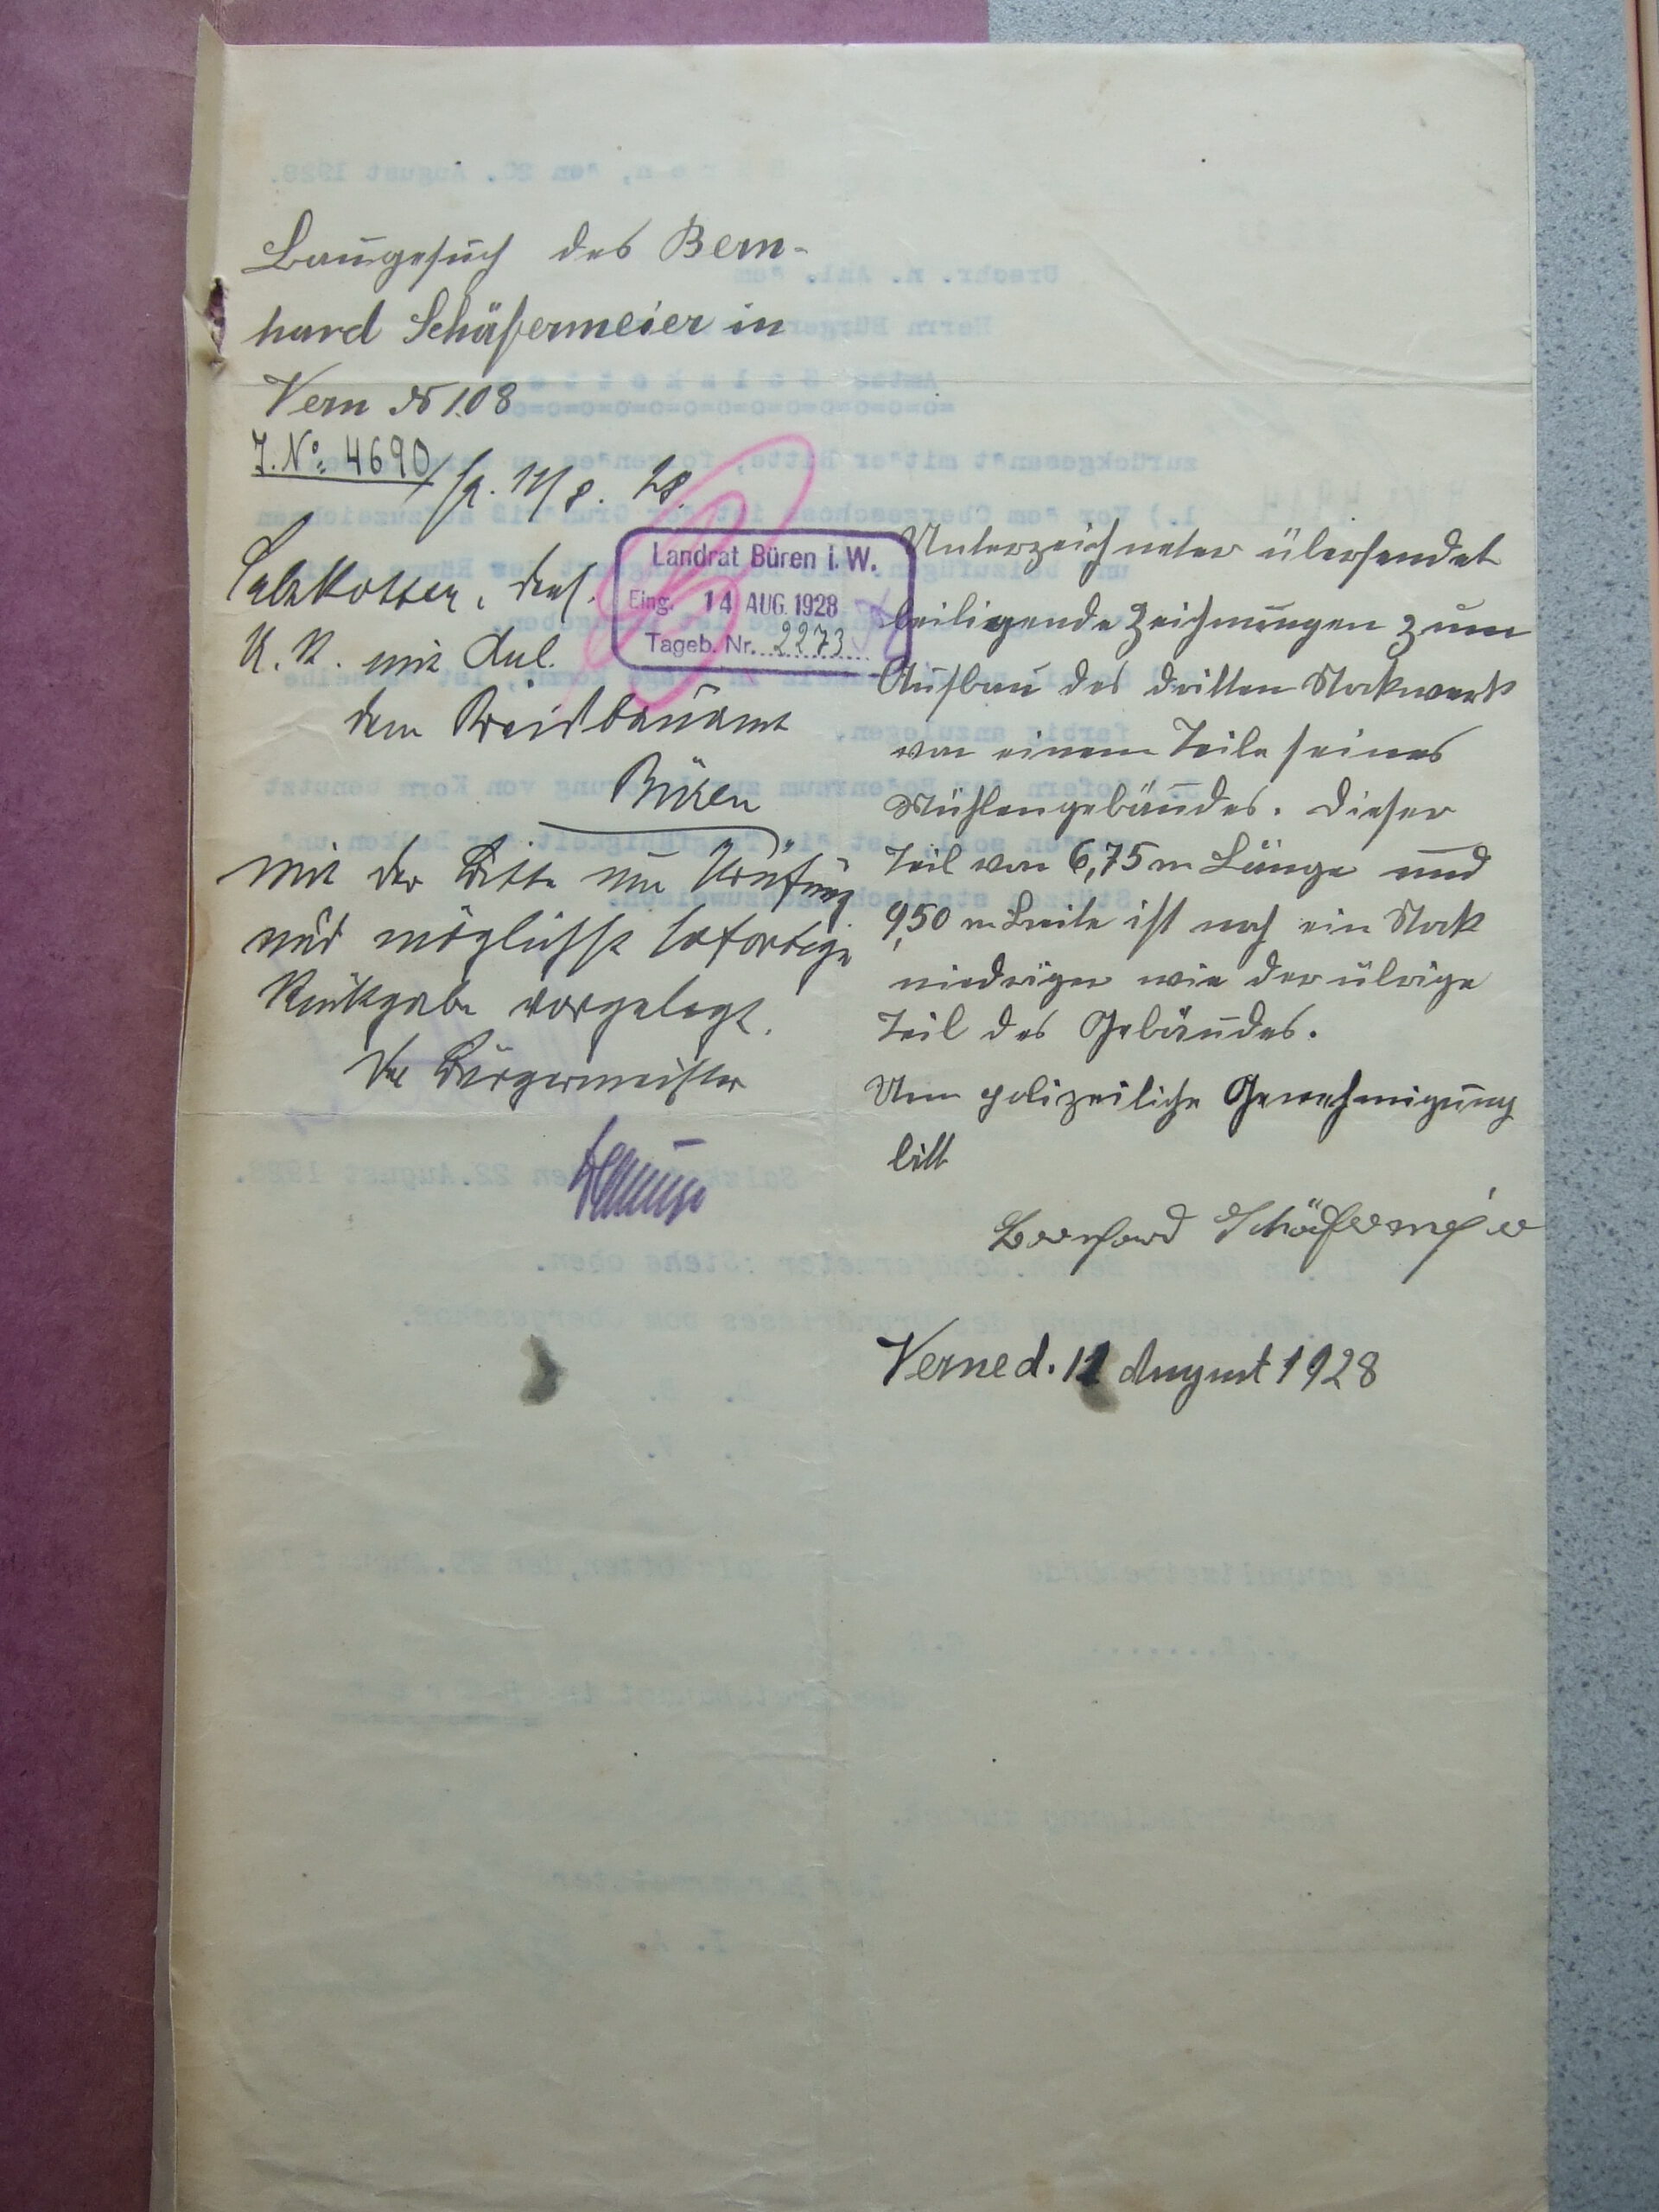 Baugesuch des Bern-
hard Schäfermeier in
Vern № 108
J. No: 4690
14/8. 28.
Salzkotten, dens.
U. R. mit Anl.
dem Kreisbauamt
Büren
mit der Bitte um Prüfung
und möglichst sofortige
Rückgabe vorgelegt.
Der Bürgermeister
Landrat Büren i. W.
Eing. 14 AUG. 1928
Tageb. Nr. 2273
Unterzeichneter übersendet
beiligende Zeichnungen zum
Aufbau des dritten Stockwerks
von einem Teile seines
Mühlengebäudes. Dieser
Teil von 6,75 m Länge und
9,50 m Breite ist noch ein Stock
niedriger wie der übrige
Teil des Gebäudes.
Um polizeiliche Genehmigung
bitt
Bernhard Schäfermeier
Verne d. 11 August 1928